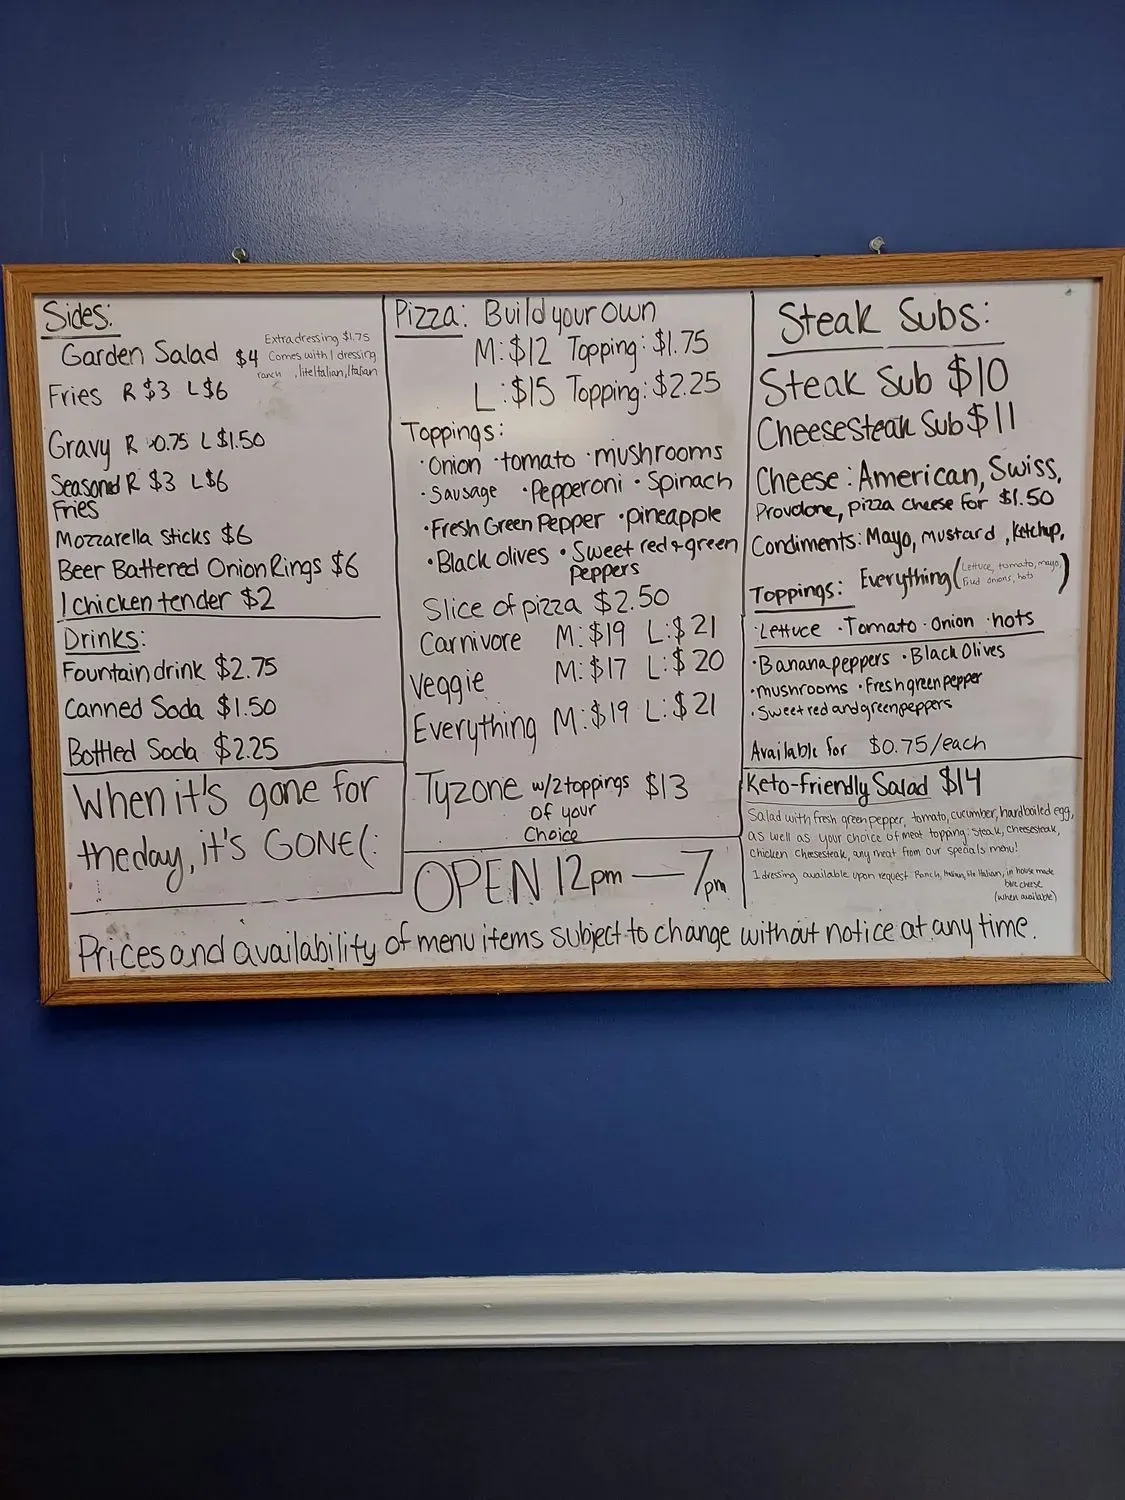 Sides:
Garden Salad $4
Extra dressing $1.75
Comes with 1 dressing
ranch , lite Italian, Italian
Fries R $3 L $6
Gravy R 0.75 L $1.50
Seasoned R $3 L $6
Fries
Mozzarella Sticks $6
Beer Battered Onion Rings $6
1 chicken tender $2
Drinks:
Fountain drink $2.75
Canned Soda $1.50
Bottled Soda $2.25
When it's gone for
the day, it's GONE(:
Pizza: Build your own
M: $12 Topping: $1.75
L: $15 Topping: $2.25
Toppings:
· Onion · tomato · mushrooms
· Sausage · Pepperoni · Spinach
· Fresh Green Pepper · pineapple
· Black olives · Sweet red + green
peppers
Slice of pizza $2.50
Carnivore M: $19 L: $21
Veggie M: $17 L: $20
Everything M: $19 L: $21
Tyzone w/2 toppings $13
of your
Choice
OPEN 12pm — 7pm
Steak Subs:
Steak Sub $10
CheeseSteak Sub $11
Cheese: American, Swiss,
Provolone, pizza cheese for $1.50
Condiments: Mayo, mustard, ketchup,
Toppings: Everything (Lettuce, tomato, mayo,
onions, hots)
· Lettuce · Tomato · Onion · hots
· Banana peppers · Black Olives
· mushrooms · Fresh green pepper
· Sweet red and green peppers
Available for $0.75/each
Keto-friendly Salad $14
Salad with fresh green pepper, tomato, cucumber, hard boiled egg,
as well as your choice of meat topping: Steak, cheesesteak,
Chicken cheesesteak, any meat from our specials menu!
1 dressing available upon request Ranch, Italian, lite Italian, in house made
blue cheese
(when available)
Prices and availability of menu items subject to change without notice at any time.